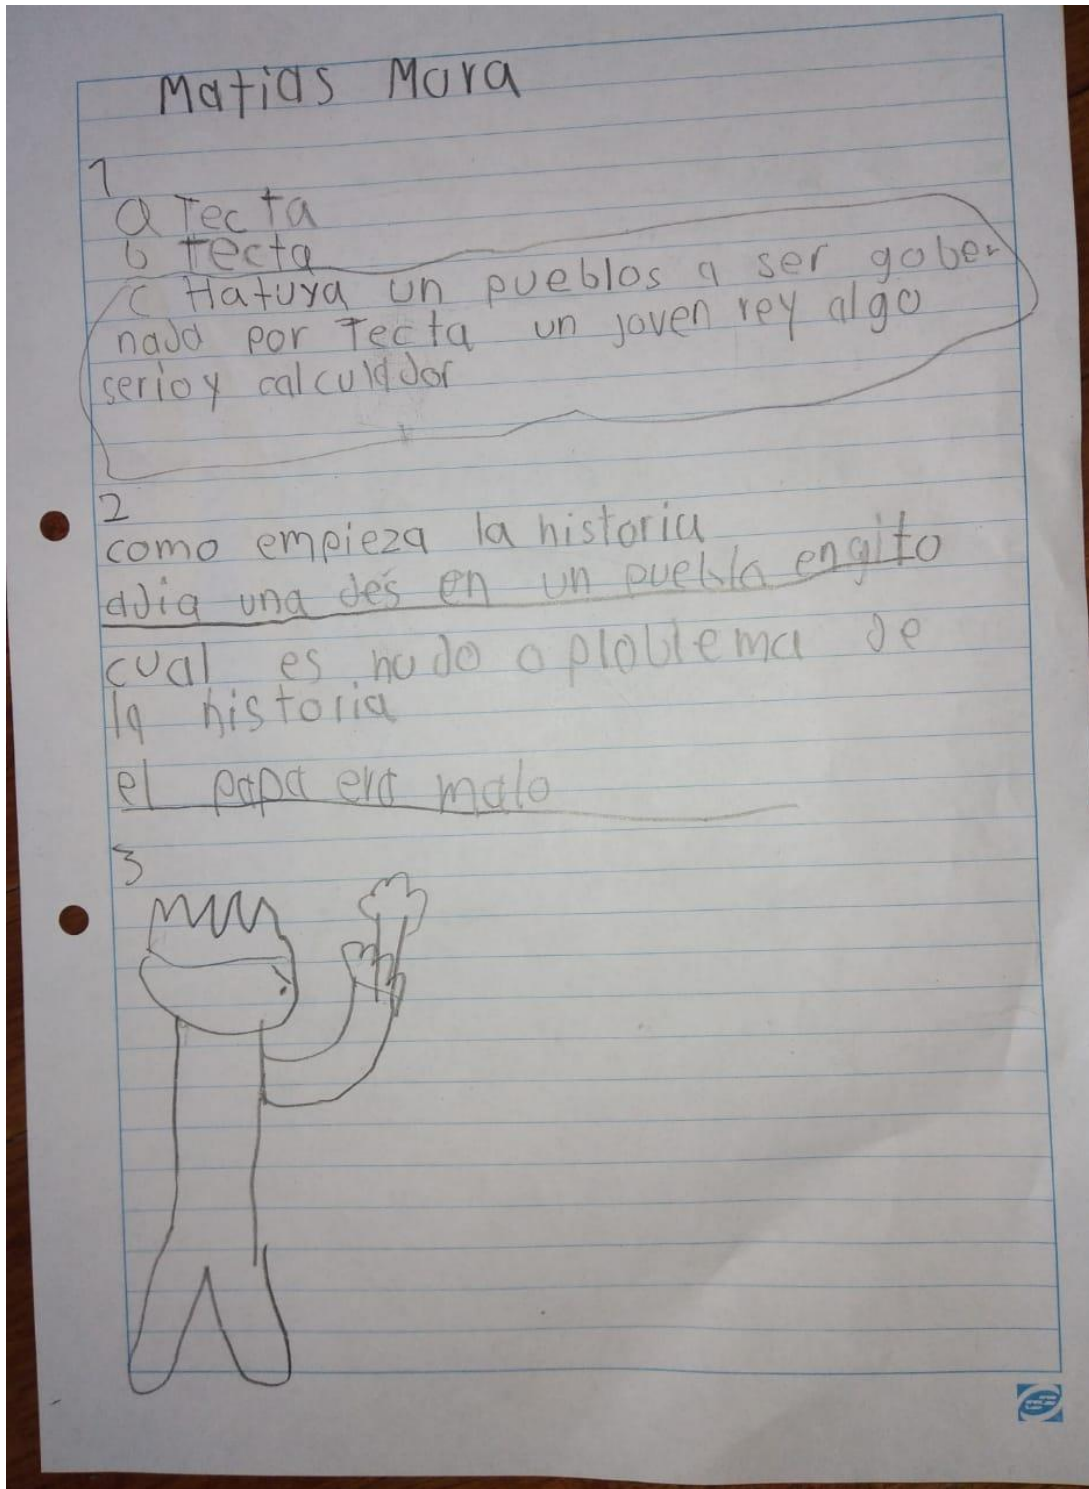 Matias Mora
1
a Tecta
b tecta
c Hatuya un pueblos a ser gober
nada por Tecta un joven rey algo
serio y calculador
2
como empieza la historia
adia una des en un puebla engito
cual es nudo o ploblema de
la historia
el papa era malo
3